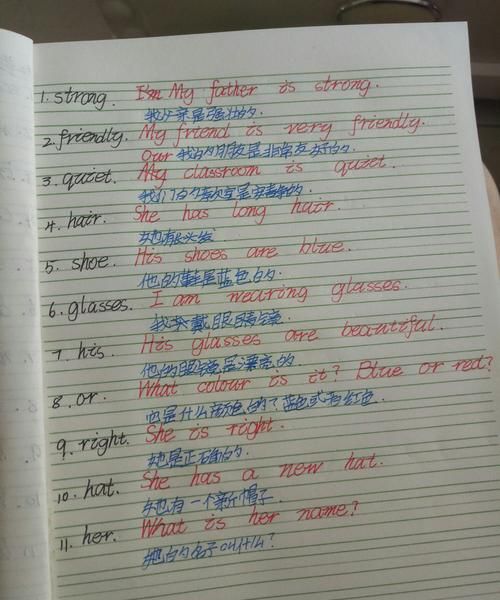 1. strong. I'm My father is strong.
我父亲是强壮的.
2. friendly. My friend is very friendly.
我的朋友是非常友好的.
3. quiet. Our My classroom is quiet.
我们的教室是安静的.
4. hair. She has long hair.
她有长头发
5. shoe. His shoes are blue.
他的鞋是蓝色的.
6. glasses. I am wearing glasses.
我在戴眼睛镜.
7. his. His glasses are beautiful.
他的眼镜是漂亮的.
8. or. What colour is it? Blue or red?
它是什么颜色的?蓝色或者红色.
9. right. She is right.
她是正确的.
10. hat. She has a new hat.
她有一个新帽子.
11. her. What is her name?
她的名子叫什么?